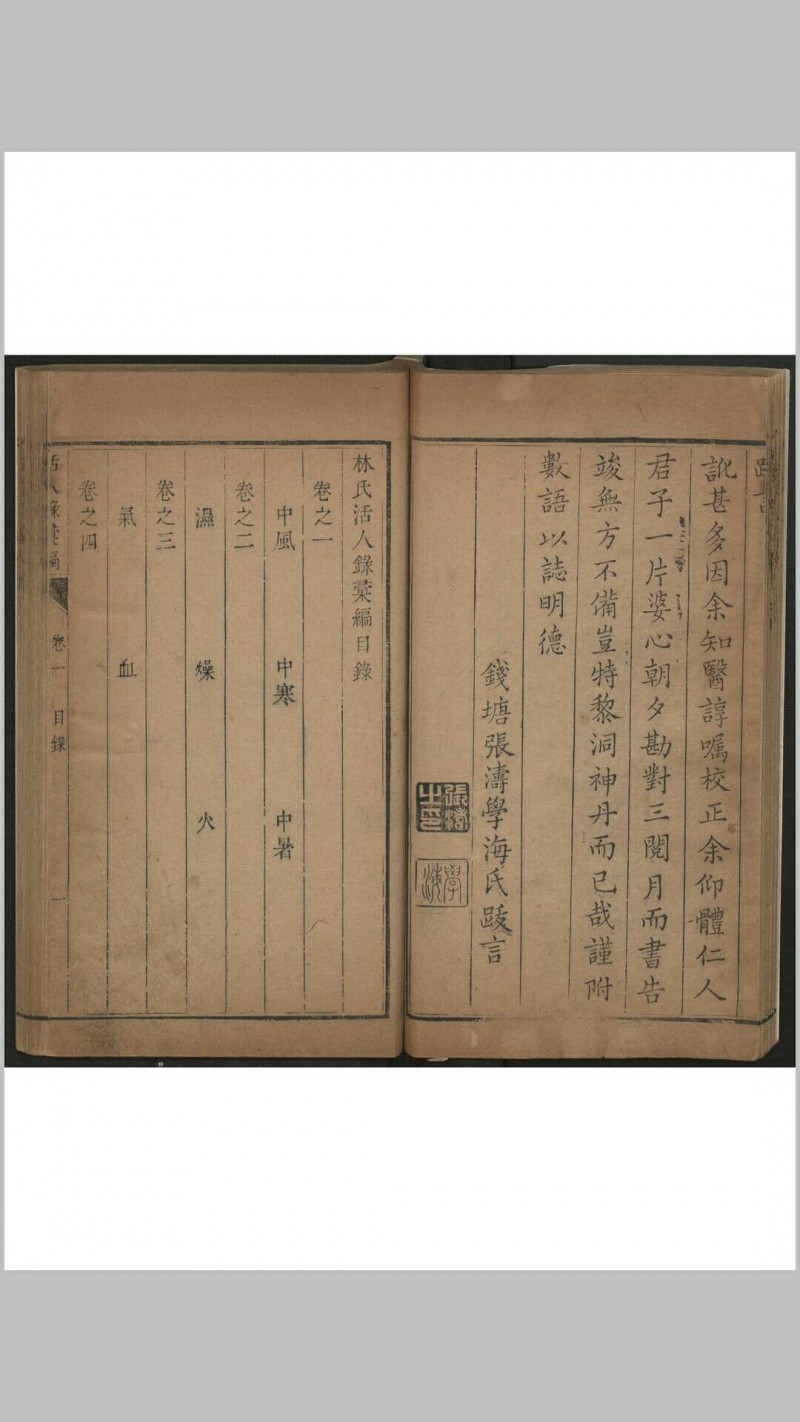 訛甚多因余知醫諄嘱校正余仰體仁人
君子一片婆心朝夕勘對三閱月而書告
竣無方不備豈特黎洞神丹而已哉謹附
數語以誌明德
錢塘張濤學海氏跋言
張濤之印
學海
林氏活人錄彙編目錄
卷之一
中風 中寒 中暑
卷之二
濕 燥 火
卷之三
氣 血
卷之四
活人錄彙編 卷一 目錄 一